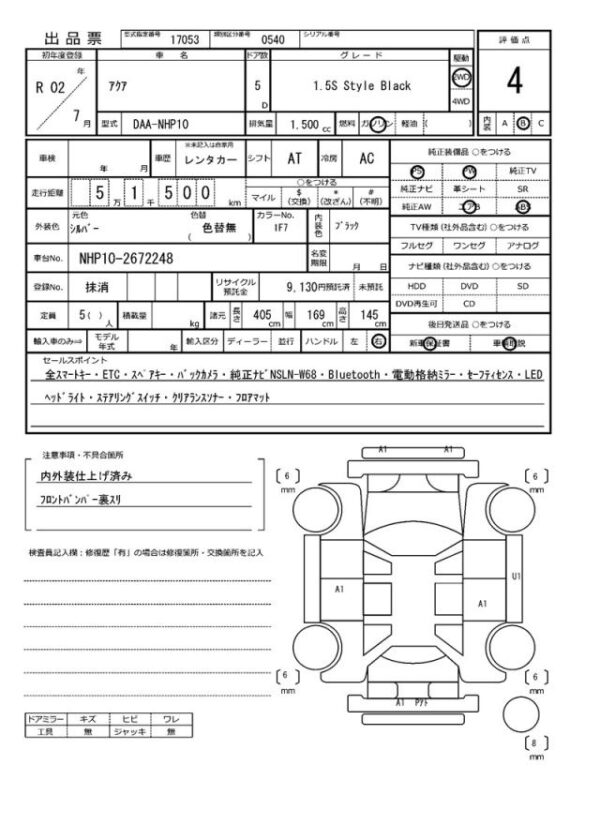 出品票 型式指定番号 17053 類別区分番号 0540 シリアル番号
評価点
初年度登録 車名 ドア数 グレード 駆動
R 02 年 7 月 アクア 5 D 1.5S Style Black 2WD 4WD
4
型式 DAA-NHP10 排気量 1,500 cc 燃料 ガソリン 軽油 ( )
内装 A B C
車検 年 月 車歴 ※未記入は自家用 レンタカー シフト AT 冷房 AC
純正装備品 ○をつける
PS PW 純正TV
走行距離 5 万 1 千 5 0 0 km マイル ○をつける $ (交換) * (改ざん) # (不明)
純正ナビ 革シート SR
純正AW エアB ABS
外装色 元色 シルバー 色替 色替無 ( ) カラーNo. 1F7 内装色 ブラック
TV種類(社外品含む)○をつける
フルセグ ワンセグ アナログ
車台No. NHP10-2672248 名変期限 月 日
ナビ種類(社外品含む)○をつける
登録No. 抹消 リサイクル預託金 9,130円預託済 未預託
HDD DVD SD
DVD再生可 CD
定員 5( )人 積載量 kg 諸元 長さ 405 cm 幅 169 cm 高さ 145 cm
後日発送品 ○をつける
輸入車のみ⇒ モデル年式 年 輸入区分 ディーラー 並行 ハンドル 左 右
新車保証書 車輌取説
セールスポイント
全スマートキー・ETC・スペアキー・バックカメラ・純正ナビNSLN-W68・Bluetooth・電動格納ミラー・セーフティセンス・LED
ヘッドライト・ステアリングスイッチ・クリアランスソナー・フロアマット
注意事項・不具合箇所
内外装仕上げ済み
フロントバンパー裏スリ
検査員記入欄:修復歴「有」の場合は修復箇所・交換箇所を記入
A1 A1
( 6 ) mm ( 6 ) mm
A1 A1 U1
( 6 ) mm ( 6 ) mm
A1 アクト
( 8 ) mm
ドアミラー キズ ヒビ ワレ
工具 無 ジャッキ 無